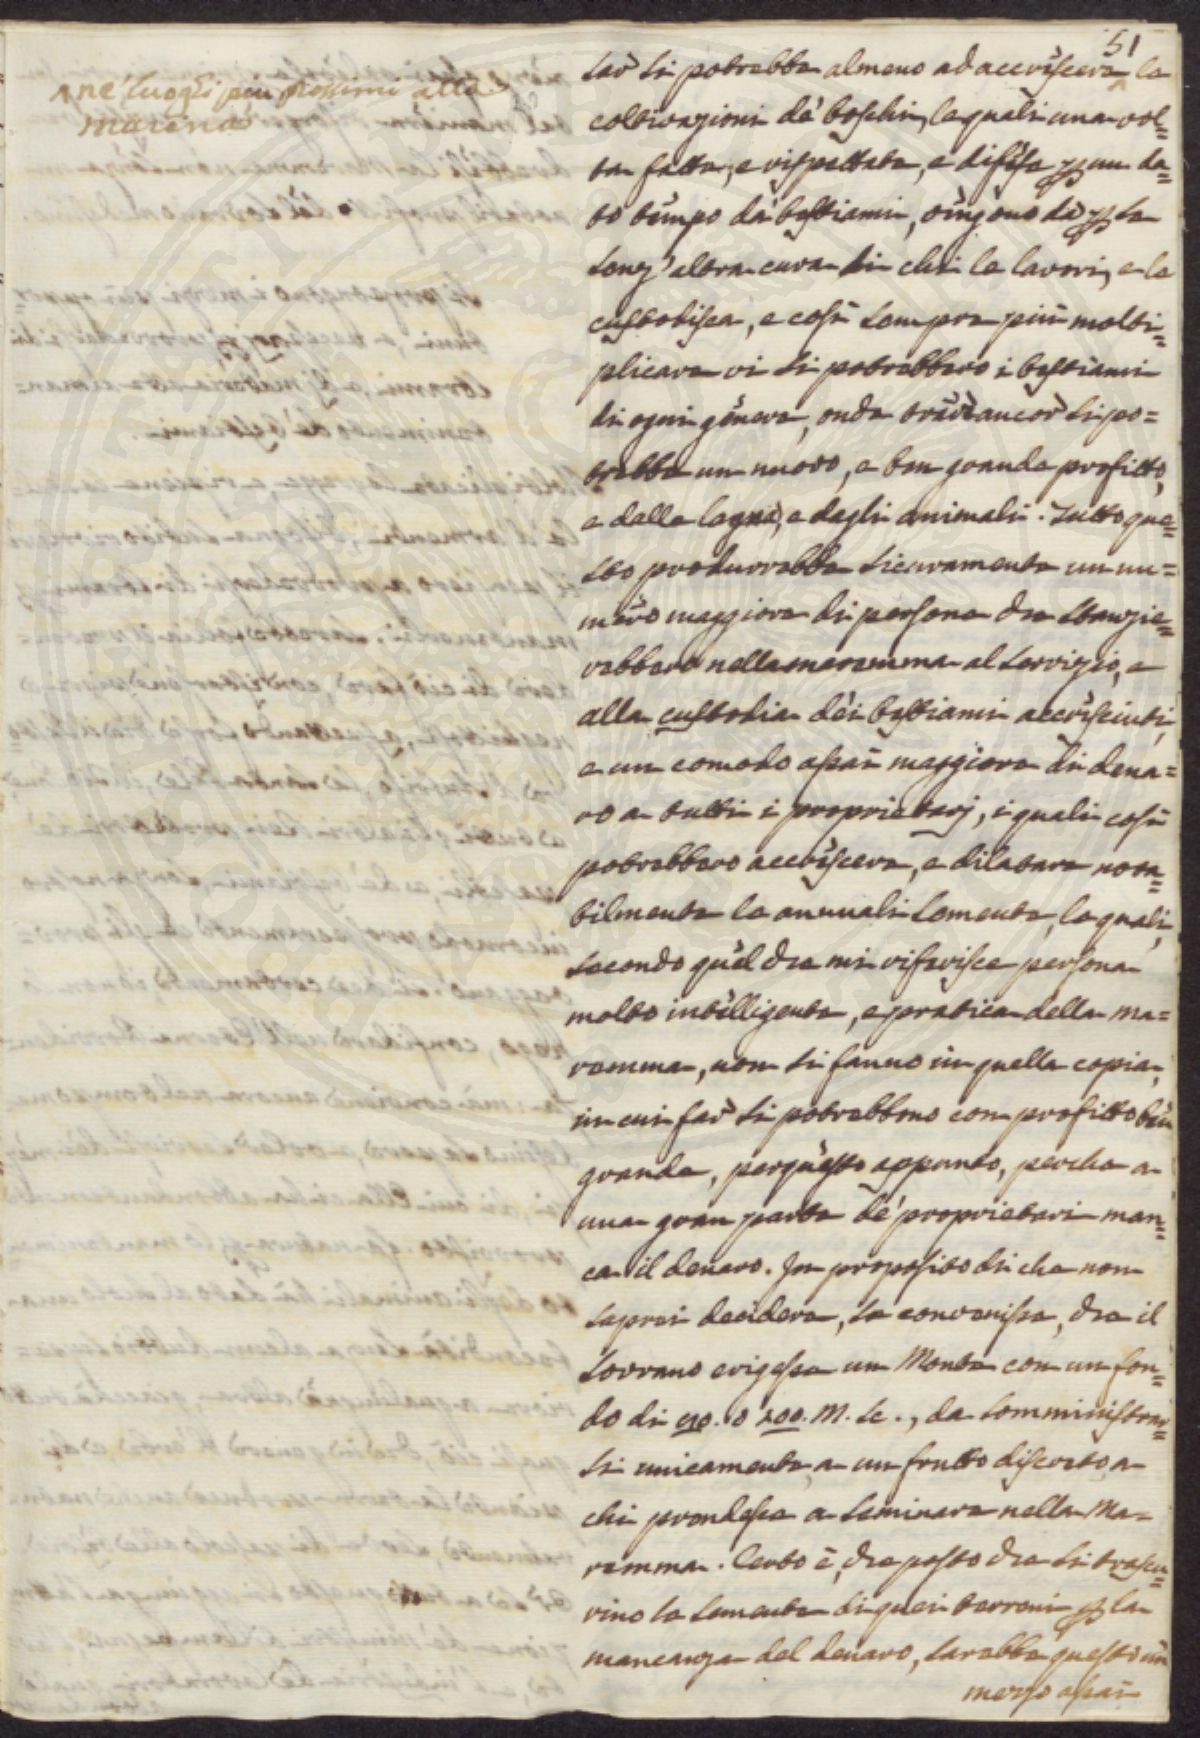 51
^ ne' luoghi più prossimi alla
marina
far si potrebbe almeno ad accrescere ^ le
coltivazioni de' boschi, le quali una vol=
ta fatte, e rispettate, e difese per un da=
to tempo da' bestiami, vengono da per se
senz' altra cura di chi le lavori, e le
custodisca, e così sempre più molti=
plicare vi si potrebbero i bestiami
di ogni genere, onde trarre ancor si po=
trebbe un nuovo, e ben grande profitto,
e dalle legne, e dagli animali. Tutto que=
sto produrrebbe sicuramente un nu=
mero maggiore di persone che stanzie=
rebbero nella maremma al servizio, e
alla custodia dei bestiami accresciuti,
e un comodo assai maggiore di dena=
ro a tutti i proprietarj, i quali così
potrebbero accrescere, e dilatare nota=
bilmente le annuali semente, le quali,
secondo quel che mi riferisce persona
molto intelligente, e pratica della ma=
remma, non si fanno in quella copia,
in cui far si potrebbono con profitto ben
grande, per questo appunto, perche a
una gran parte de' proprietari man=
ca il denaro. In proposito di che non
saprei decidere, se convenisse, che il
Sovrano erigesse un Monte con un fon=
do di 90. o 100. M. sc., da somministrar=
si unicamente, a un frutto discreto, a
chi prendesse a seminare nella Ma=
remma. Certo è, che posto che si trascu=
rino le semente di quei terreni per la
mancanza del denaro, sarebbe questo un
mezzo assai